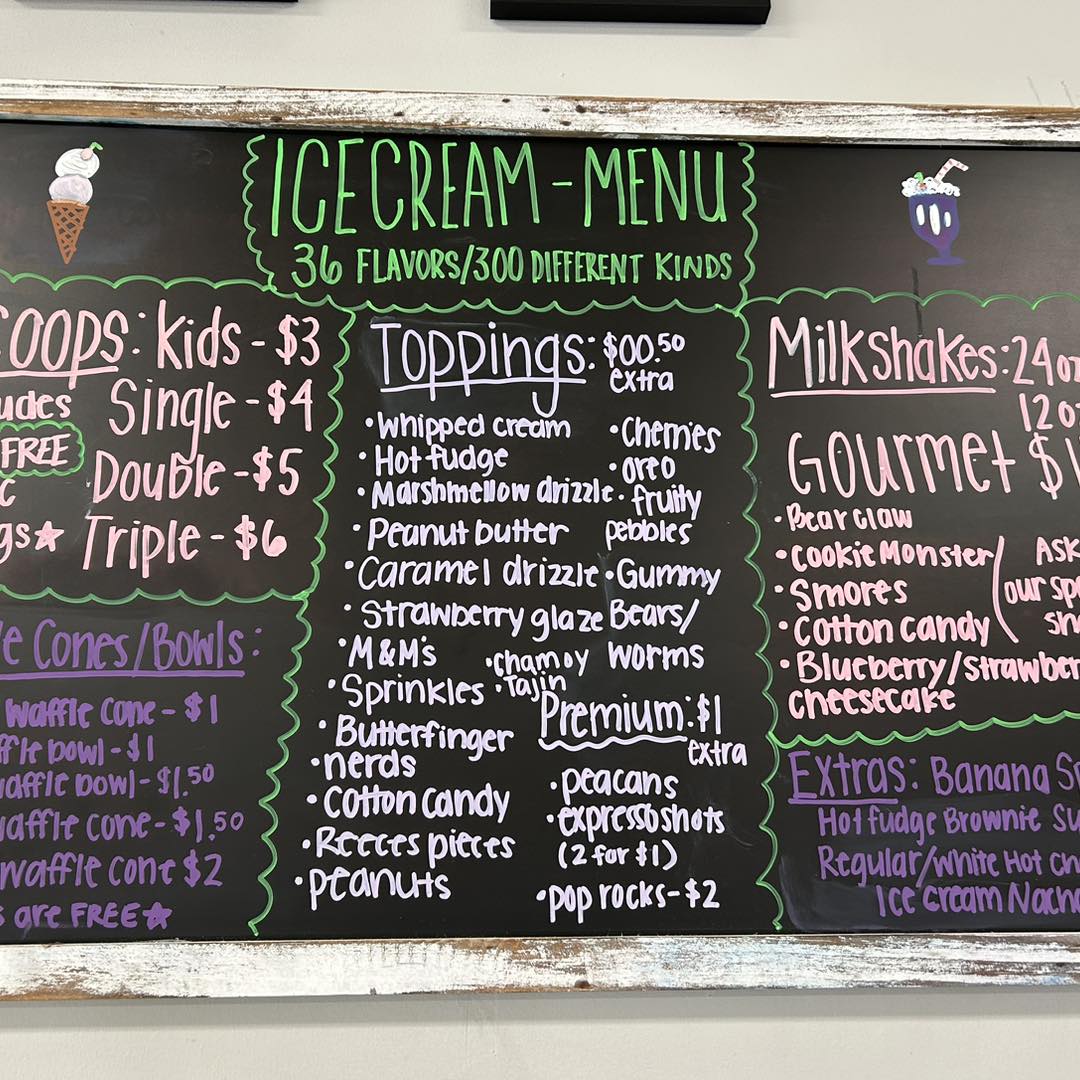 ICECREAM-MENU
36 FLAVORS/300 DIFFERENT KINDS
COOPS: kids-$3
udes Single-$4
FREE
Double-$5
c
gs☆ Triple-$6
e Cones/Bowls:
waffle cone-$1
ffle bowl-$1
waffle bowl-$1.50
waffle cone-$1.50
waffle cone $2
s are FREE☆
Toppings: $00.50
extra
•Whipped cream
•Hot fudge
•Marshmellow drizzle
•Peanut butter
•Caramel drizzle
•Strawberry glaze
•M&M's
•Sprinkles
•Butterfinger
•nerds
•Cotton candy
•Reeces pieces
•peanuts
•Cherries
•oreo
•fruity
pebbles
•Gummy
Bears/
worms
•chamoy
•Tajin
Premium:$1
extra
•peacans
•expresso shots
(2 for $1)
•pop rocks-$2
Milkshakes:24oz
12oz
Gourmet $1
•Bear claw
•Cookie Monster
•Smores
•Cotton candy
•Blueberry/Strawber
cheesecake
Ask
our sp
Extras: Banana Sp
Hot fudge Brownie Su
Regular/white Hot Ch
Ice cream Nach